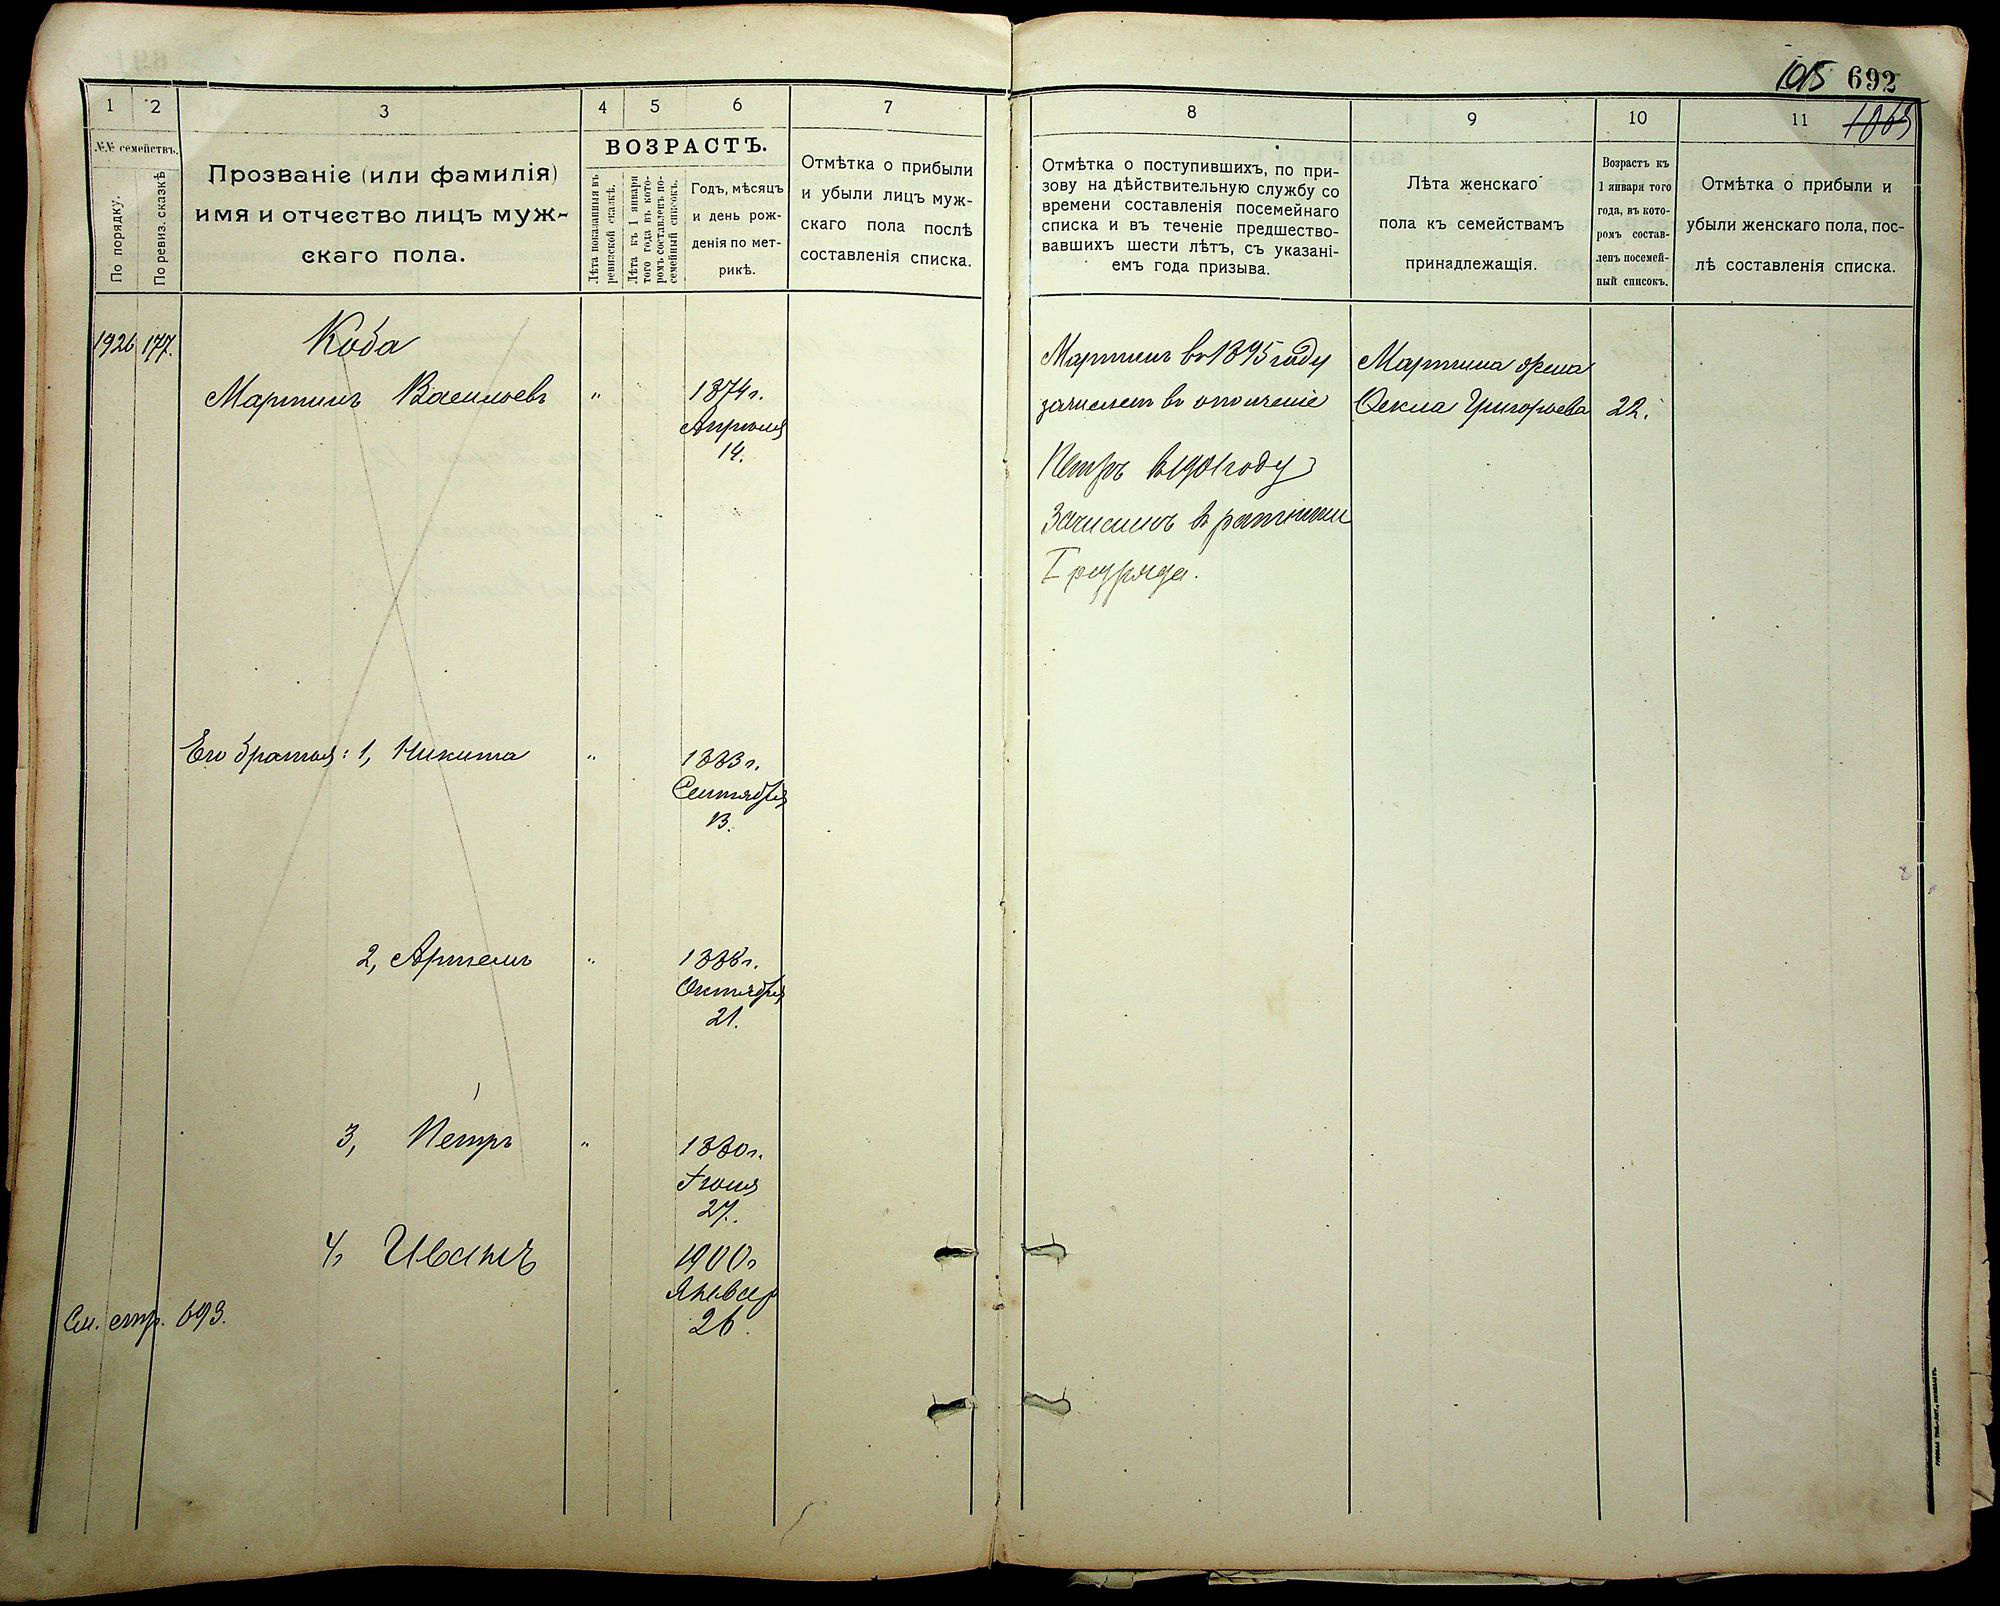 1015 692
1065
1
2
3
4
5
6
7
8
9
10
11
№№ семействъ.
По порядку.
По ревиз. сказкѣ
Прозваніе (или фамилія)
имя и отчество лицъ муж-
скаго пола.
ВОЗРАСТЪ.
Лѣта показанныя въ
ревизской сказкѣ.
Лѣта къ 1 января
того года въ кото-
ромъ составленъ по-
семейный списокъ.
Годъ, мѣсяцъ
и день рож-
денія по мет-
рикѣ.
Отмѣтка о прибыли
и убыли лицъ муж-
скаго пола послѣ
составленія списка.
Отмѣтка о поступившихъ, по при-
зову на дѣйствительную службу со
времени составленія посемейнаго
списка и въ теченіе предшество-
вавшихъ шести лѣтъ, съ указані-
емъ года призыва.
Лѣта женскаго
пола къ семействамъ
принадлежащія.
Возрастъ къ
1 января того
года, въ кото-
ромъ состав-
ленъ посемей-
ный списокъ.
Отмѣтка о прибыли и
убыли женскаго пола, пос-
лѣ составленія списка.
1926 177. Коба
Мартинъ Васильевъ " 1874 г.
Апрѣля
14.
Мартинъ въ 1895 году
зачисленъ въ ополченіе
Петръ в 1901 году
Зачисленъ в ратники
I разряда.
Мартина жена
Ѳекла Григорьева 22.
Его братья: 1, Никита " 1883 г.
Сентября
13.
2, Артемъ " 1888 г.
Октября
21.
3, Петръ " 1880 г.
Іюня
27.
4, Иванъ 1900 г
Январ
26.
См. стр. 693.